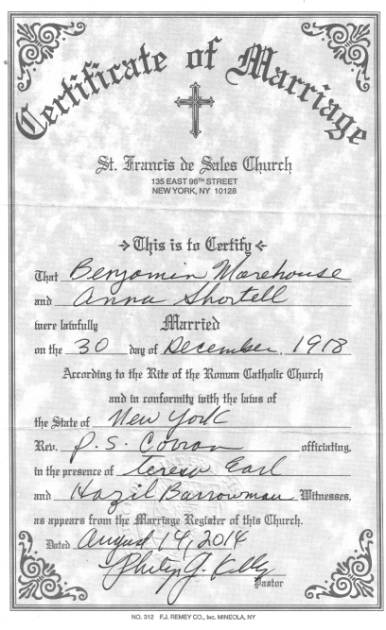 Certificate of Marriage
St. Francis de Sales Church
135 EAST 96TH STREET
NEW YORK, NY 10128
This is to Certify
That Benjamin Morehouse
and Anna Shortell
were lawfully Married
on the 30 day of December, 1918
According to the Rite of the Roman Catholic Church
and in conformity with the laws of
the State of New York
Rev. P. S. officiating,
in the presence of Teresa Earl
and Hazil Barrowman Witnesses,
as appears from the Marriage Register of this Church.
Dated August 14, 2014
Philip J. Kelly
Pastor
NO. 312 F.J. REMEY CO., Inc. MINEOLA, NY